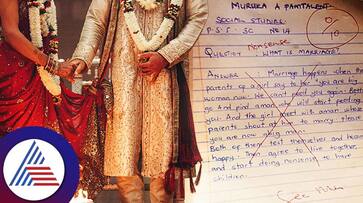 MURUKA A PAMTALENT
SOCIAL STUDIES
P.S.5 - 5C NO 14
0
10
Nonsense
QUESTION WHAT IS MARRIAGE?
ANSWER : Marriage happens when the
parents of a girl say to her "you are big
woman now. We can't feed you again. Better
go and find a man who will start feeding
you. And the girl meet with a man whose
parents shout at him to marry, please
you are now a big man.
Both of them test themselves and become
happy. Then agree to live together,
and start doing nonsense to have
children.
See Me